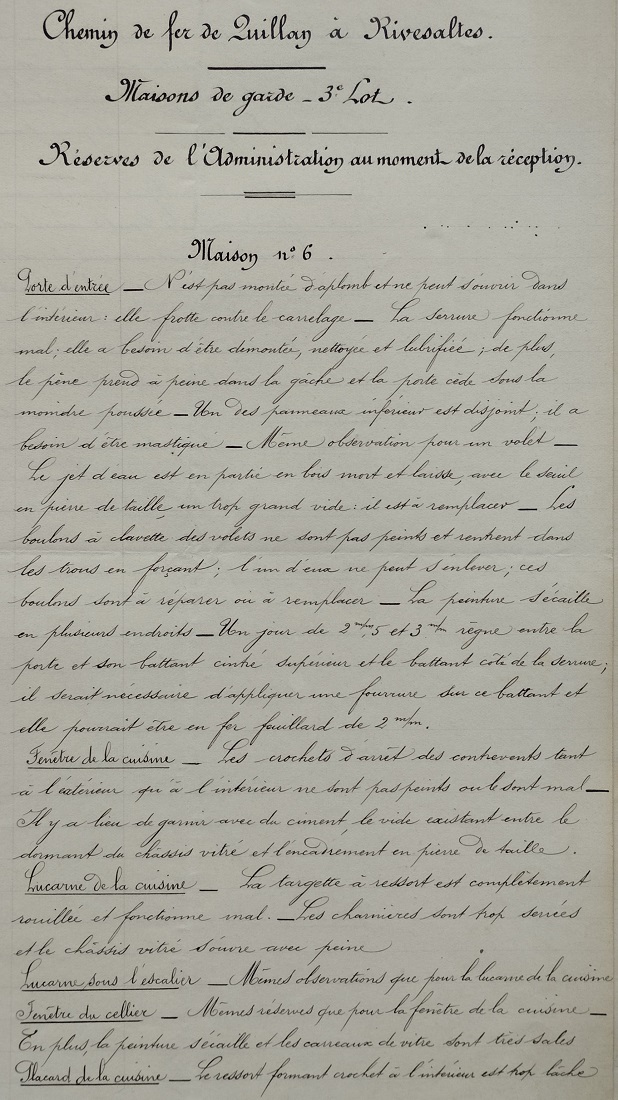 Chemin de fer de Quillan à Rivesaltes.
Maisons de garde - 3e Lot.
Réserves de l'Administration au moment de la réception.
Maison n° 6.
Porte d'entrée — N'est pas montée d'aplomb et ne peut s'ouvrir dans
l'intérieur : elle frotte contre le carrelage — La serrure fonctionne
mal ; elle a besoin d'être démontée, nettoyée et lubrifiée ; de plus,
le pène prend à peine dans la gâche et la porte cède sous la
moindre poussée — Un des panneaux inférieur est disjoint ; il a
besoin d'être mastiqué — Même observation pour un volet —
Le jet d'eau est en partie en bois mort et laisse, avec le seuil
en pierre de taille, un trop grand vide : il est à remplacer — Les
boulons à clavette des volets ne sont pas peints et rentrent dans
les trous en forçant ; l'un d'eux ne peut s'enlever ; ces
boulons sont à réparer ou à remplacer — La peinture s'écaille
en plusieurs endroits — Un jour de 2 m/m 5 et 3 m/m règne entre la
porte et son battant cintré supérieur et le battant côté de la serrure ;
il serait nécessaire d'appliquer une fourrure sur ce battant et
elle pourrait être en fer feuillard de 2 m/m.
Fenêtre de la cuisine — Les crochets d'arrêt des contrevents tant
à l'extérieur qu'à l'intérieur ne sont pas peints ou le sont mal —
Il y a lieu de garnir avec du ciment, le vide existant entre le
dormant du châssis vitré et l'encadrement en pierre de taille.
Lucarne de la cuisine — La targette à ressort est complètement
rouillée et fonctionne mal. — Les charnières sont trop serrées
et le châssis vitré s'ouvre avec peine
Lucarne sous l'escalier — Mêmes observations que pour la lucarne de la cuisine
Fenêtre du cellier — Mêmes réserves que pour la fenêtre de la cuisine —
En plus, la peinture s'écaille et les carreaux de vitre sont très sales
Placard de la cuisine — Le ressort formant crochet à l'intérieur est trop lâche